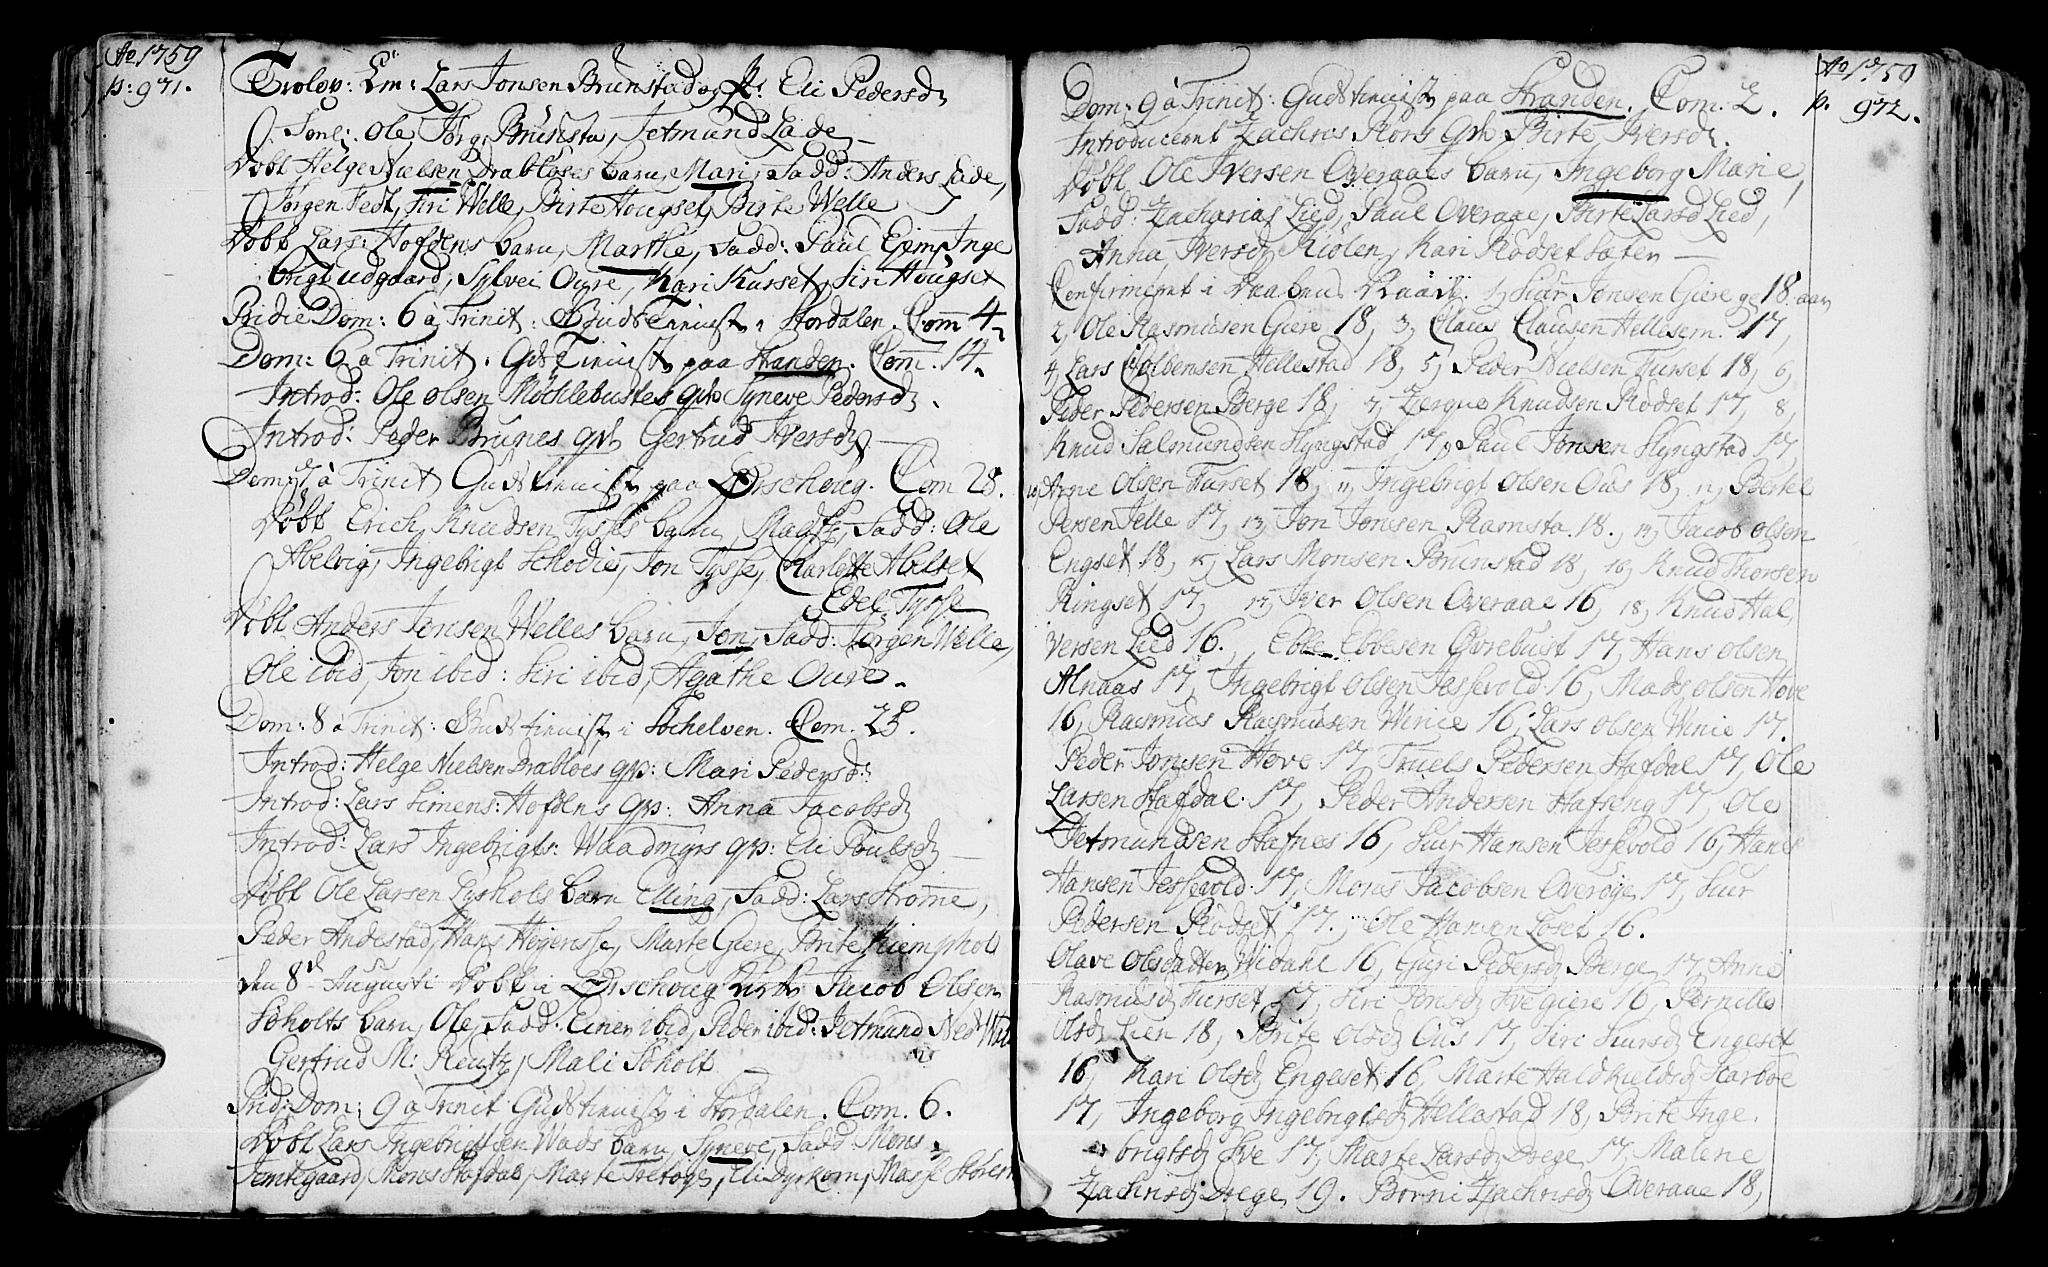 Ao 1759
p: 971.
Trolov: Em: Lars Jonsen Brunstad og P: Eli Pedersd
Sone: Ole Jørg. Brunsta, Jetmund Lade
Døbt Helge Nielsen Drabløses barn, Mari, Fadd: Anders Lade,
Jørgen Fedt, Siri Welle, Birte Hougset, Birte Welle
Døbt Lars: Hofdens barn, Marthe, Fadd: Paul Ejim, Inge
brigt udgaard, Sylvei Owre, Kari Kurset, Siri Hougset
Pridie Dom: 6 a Trinit: Gudstienist i Stordalen. Com 4.
Dom: 6 a Trinit. Gudstienist paa Stranden. Com. 14.
Introd: Ole Olsen Møchlebustes qvh Syneve Pedersd.
Introd: Peder Brunes qvh Gertrud Iversd
Dom 7 a Trinit Gudstienist paa Ørschoug. Com 28.
Døbt Erich Knudsen Tysses barn, Madsse, Fadd: Ole
Abelvig, Ingebrigt Schodie, Jon Tysse, Charlotte Abelset
Edel Tysse
Døbt Anders Jonsen Welles barn, Jon, Fadd: Jørgen Welle,
Ole ibid, Jon ibid: Siri ibid, Agathe Oure.
Dom: 8 a Trinit: Gudstienist i Søchelven. Com. 25.
Introd: Helge Nielsen Drabløes qvh: Mari Pedersd:
Introd: Lars Simens: Hofdens qvh: Anna Jacobsd
Introd: Lars Ingebrigts: Waadmyrs qvh: Eli Poulsd
Døbt Ole Larsen Lyshols barn Elling, Fadd: Lars Strømme,
Peder Andestad, Hans Hejensse, Marte Giere, Brite Kiemphol
den 8de Augusti Døbt i Ørschoug Kirke Jacob Olsen
Søholts barn, Ole, Fadd: Einer ibid, Peder ibid: Jetmund Ned
Gertrud M: Reutz, Mali Søholt
Prid: Dom: 9 a Trinit Gudstienist i Stordalen. Com. 6.
Døbt Lars Ingebrigtsen Wads barn, Syneve, Fadd: Mons
Jemtegaard, Mons Stafdal, Marte Tretøe, Eli Dyrkorn, Masse Storem
Ao 1759
p. 972.
Dom: 9 a Trinit: Gudstienist paa Stranden. Com: 2.
Introduceret Zachris Rørs qvh Birte Iversd.
Døbt Ole Iversen Overaaes barn, Ingeborg Marie,
Fadd: Zacharias Lied, Paul Overaae, Birte Larsd Lied,
Anna Iversd Kiølen, Kari Rødset Sæter
Confirmeret i Daabens Naade. 1, Siur Jonsen Giere ge 18. aar
2, Ole Rasmusen Giere 18, 3, Claus Clausen Hellesem. 17,
4, Lars Colbensen Hellestad 18, 5, Peder Nielsen Furset 18, 6,
Peder Pedersen Berge 18, 7, Zergue Knudsen Rødset 17, 8,
Knud Salmundsen Slyngstad 17, 9, Paul Jonsen Slyngstad 17,
10, Arne Olsen Furset 18, 11, Ingebrigt Olsen Ous 18, 12, Bertel
Persen Jelle 17, 13, Jon Jonsen Ramsta. 18., 14, Jacob Olsen
Engset 18, 15, Lars Monsen Brunstad 18, 16, Knud Thorsen
Ringset 17, 17, Iver Olsen Overaae 16, 18, Knud Hal
versen Lied 16., Ebbe Ebbesen Øvrebust 17, Hans Olsen
Alnaas 17, Ingebrigt Olsen Jessevold 16, Mads Olsen Hove
16, Rasmus Rasmusen Winie 16, Lars Olsen Winie 17.
Peder Jonsen Hove 17, Truels Pedersen Stafdal 17, Ole
Larsen Stafdal. 17, Peder Andersen Stafseng 17, Ole
Jetmundsen Stafnes 16, Siur Hansen Jessevold 16, Hans
Hansen Jessevold. 17, Mons Jacobsen Overøye 17, Siur
Pedersen Rødset 17., Ole Hansen Løset 16.
Olave Olsdatter Widahl 16, Guri Pedersd Berge 17, Anne
Rasmusd Furset 17, Siri Jonsd Svegiere 16, Pernille
Olsd Lien 18, Brite Olsd Ous 17, Siri Siursd Engeset
16, Kari Olsd Engeset 16, Marte Haldkields Skarboe
17, Ingeborg Ingebrigtsd Hellestad 18, Brite Inge.
brigtsd Sve 17, Marte Larsd Drege 17, Malene
Zachrisd Drege, 19. Børni Zachrisd Overaae 18,